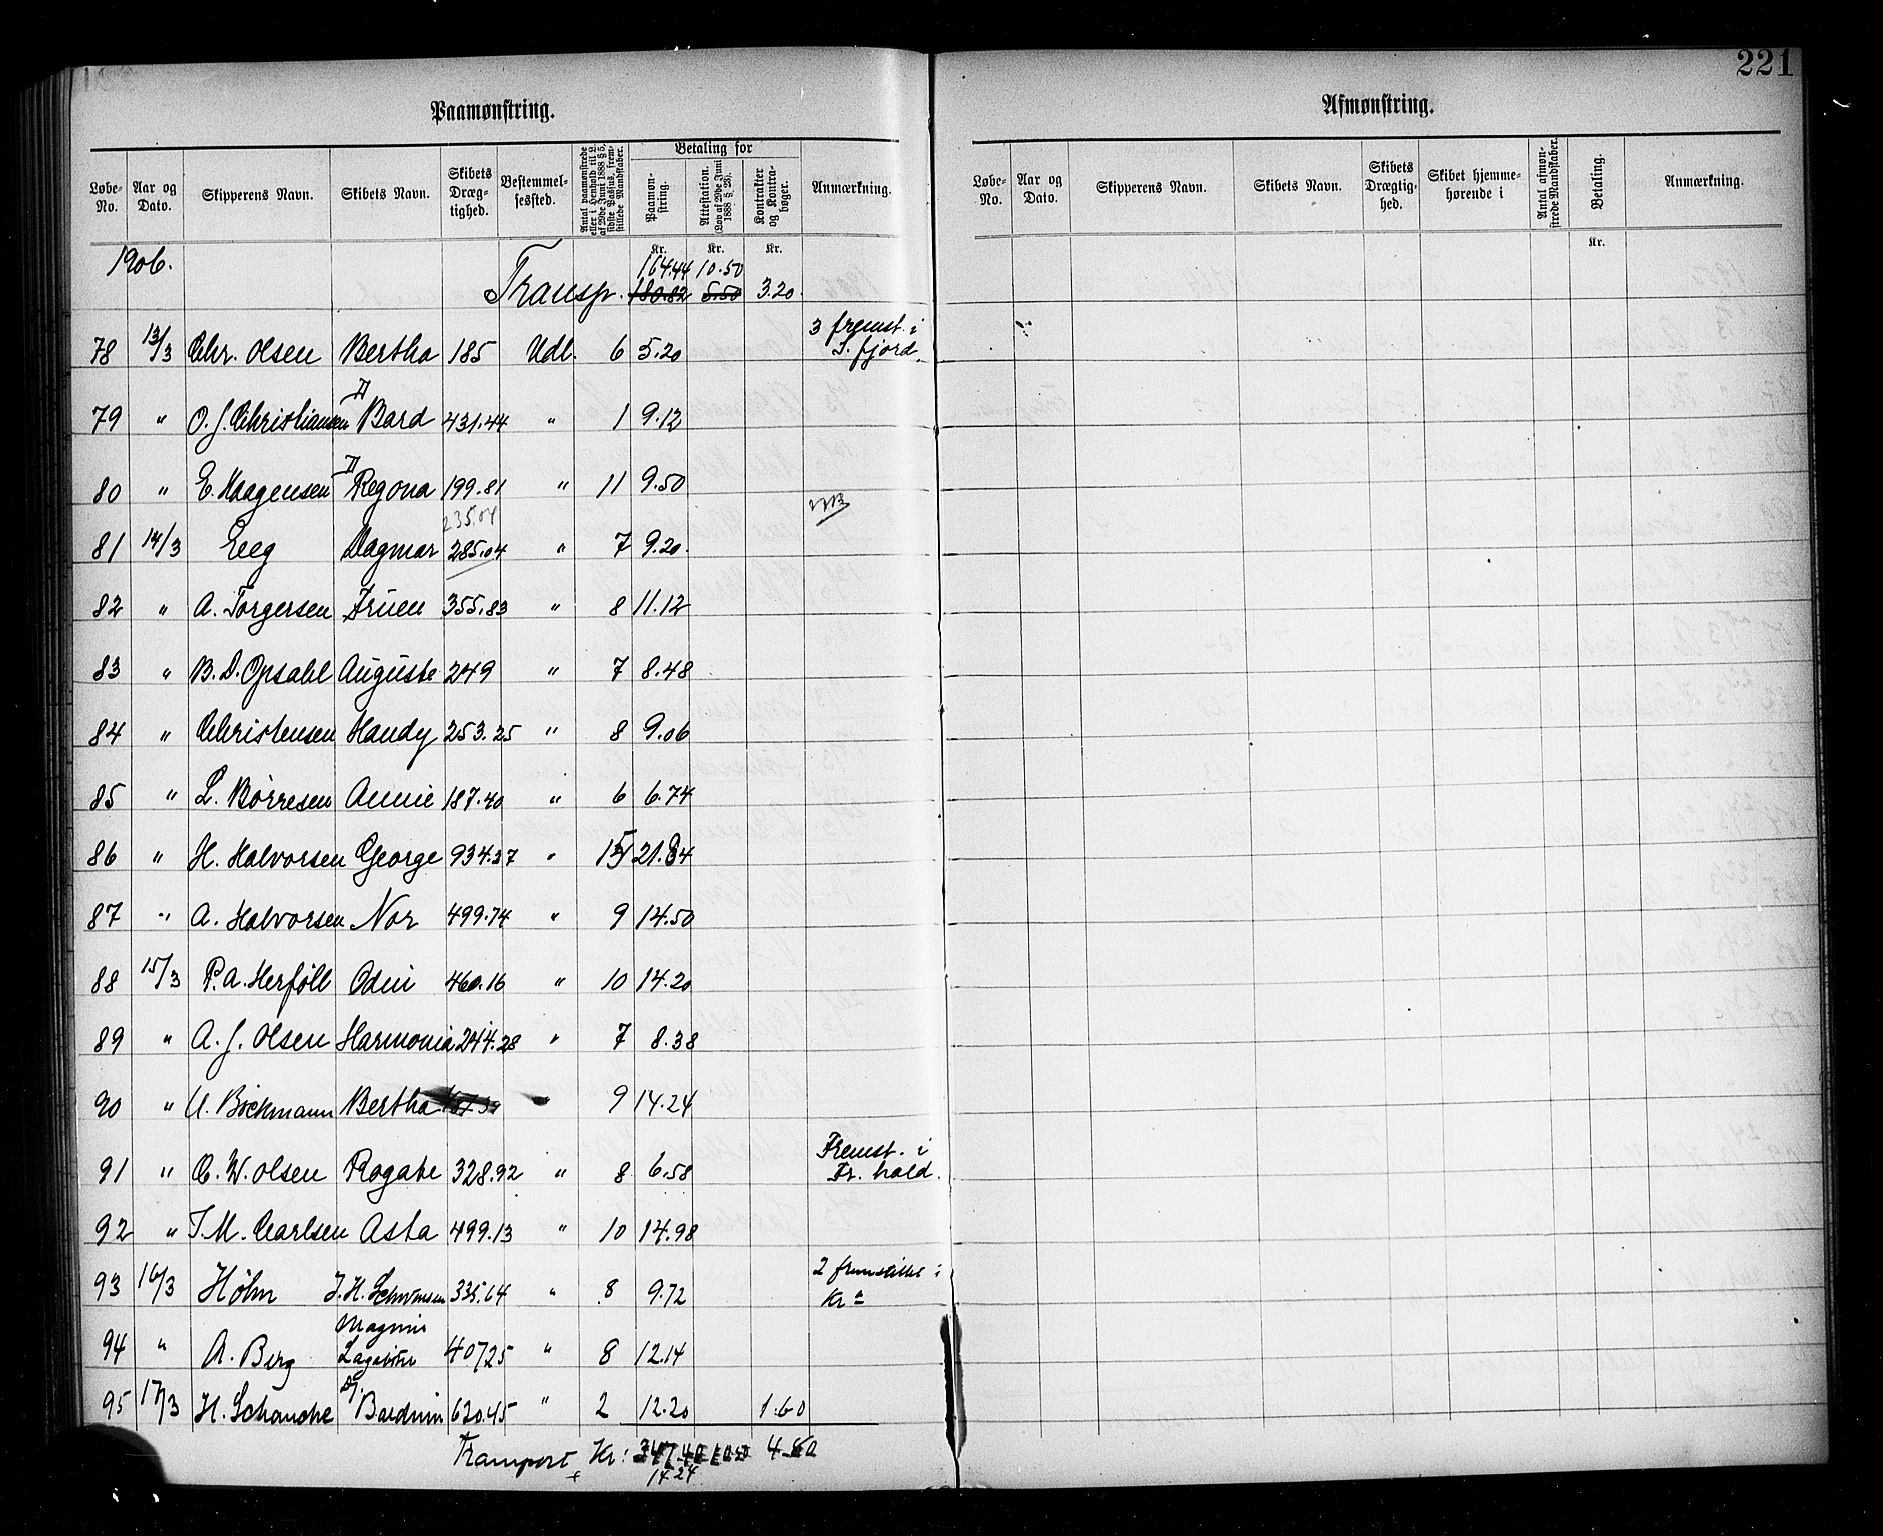 221
Paamønstring.
Afmønstring.
Løbe-No. Aar og Dato. Skippere​ns Navn. Skibets Navn. Skibets Dræg-tighed. Bestemmel-sessted. Antal paamønstrede eller i Henhold til L. af 29de Juni 1888 § 5, sidste Passus, frem-stillede Mandskaber. Betaling for Paamøn-string. Attestation. (Lov af 29de Juni 1888 § 28). Kontrakter og Kontra-bøger. Anmærkning.
Løbe-No. Aar og Dato. Skipperens Navn. Skibets Navn. Skibets Drægtig-hed. Skibet hjemme-hørende i Antal afmøn-strede Mandskaber. Betaling. Anmærkning.
Kr. Kr. Kr. Kr.
1906. 164.44 10.50
Transp. 180.82 5.50 3.20
78 13/3 Chr. Olsen Bertha 185 Udl. 6 5.20 3 fremst. i S. fjord.
79 " O. J. Christiansen D Bard 431.44 " 1 9.12
80 " E. Haagensen D Regona 199.81 " 11 9.50
235.04
81 14/3 Eeg Dagmar 285.04 " 7 9.20
82 " A. Torgersen Fruen 355.83 " 8 11.12
83 " B. D. Opsahl Auguste 249 " 7 8.48
84 " Christensen Handy 253.25 " 8 9.06
85 " L. Børresen Annie 187.40 " 6 6.74
86 " H. Halvorsen George 934.37 " 15 21.84
87 " A. Halvorsen Nor 499.74 " 9 14.50
88 15/3 P. A. Herföll Odin 460.16 " 10 14.20
89 " A. J. Olsen Harmonia 244.28 " 7 8.38
90 " U. Böckmann Bertha " 9 14.24
91 " C. W. Olsen Rogate 328.92 " 8 6.58 Fremst. i Fr. hald.
92 " T. M. Carlsen Asta 499.13 " 10 14.98
93 16/3 Høhn J. H. Schwensen 335.64 " 8 9.72 2 fremstillet i Kra
94 " A. Berg Magnus Lagabøte 407.25 " 8 12.14
95 17/3 H. Schanche D/. Bardvin 620.45 " 2 12.20 1.60
Transport Kr: 347.40 10.50 4.80
14.24